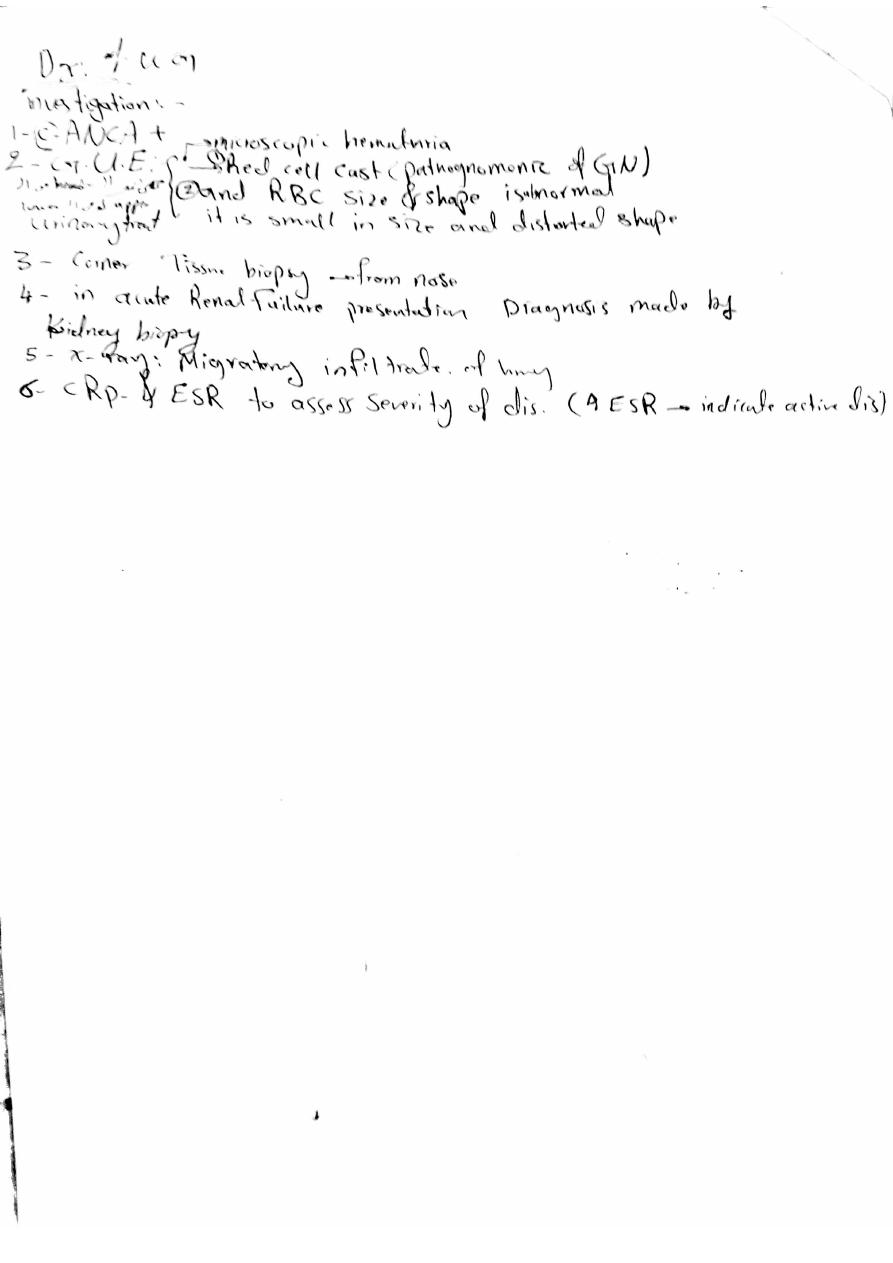 Dx:
investigation: -
1- C-ANCA +
microscopic hematuria
2- G.U.E: ① Red cell cast (pathognomonic of GN)
② and RBC size & shape is abnormal
it is small in size and distorted shape
urinary tract
3- Corner Tissue biopsy → from nose
4- in acute Renal Failure presentation Diagnosis made by
Kidney biopy
5- x-ray: Migratory infiltrate of lung
6- CRP- & ESR to assess severity of dis. (↑ ESR → indicate active dis)